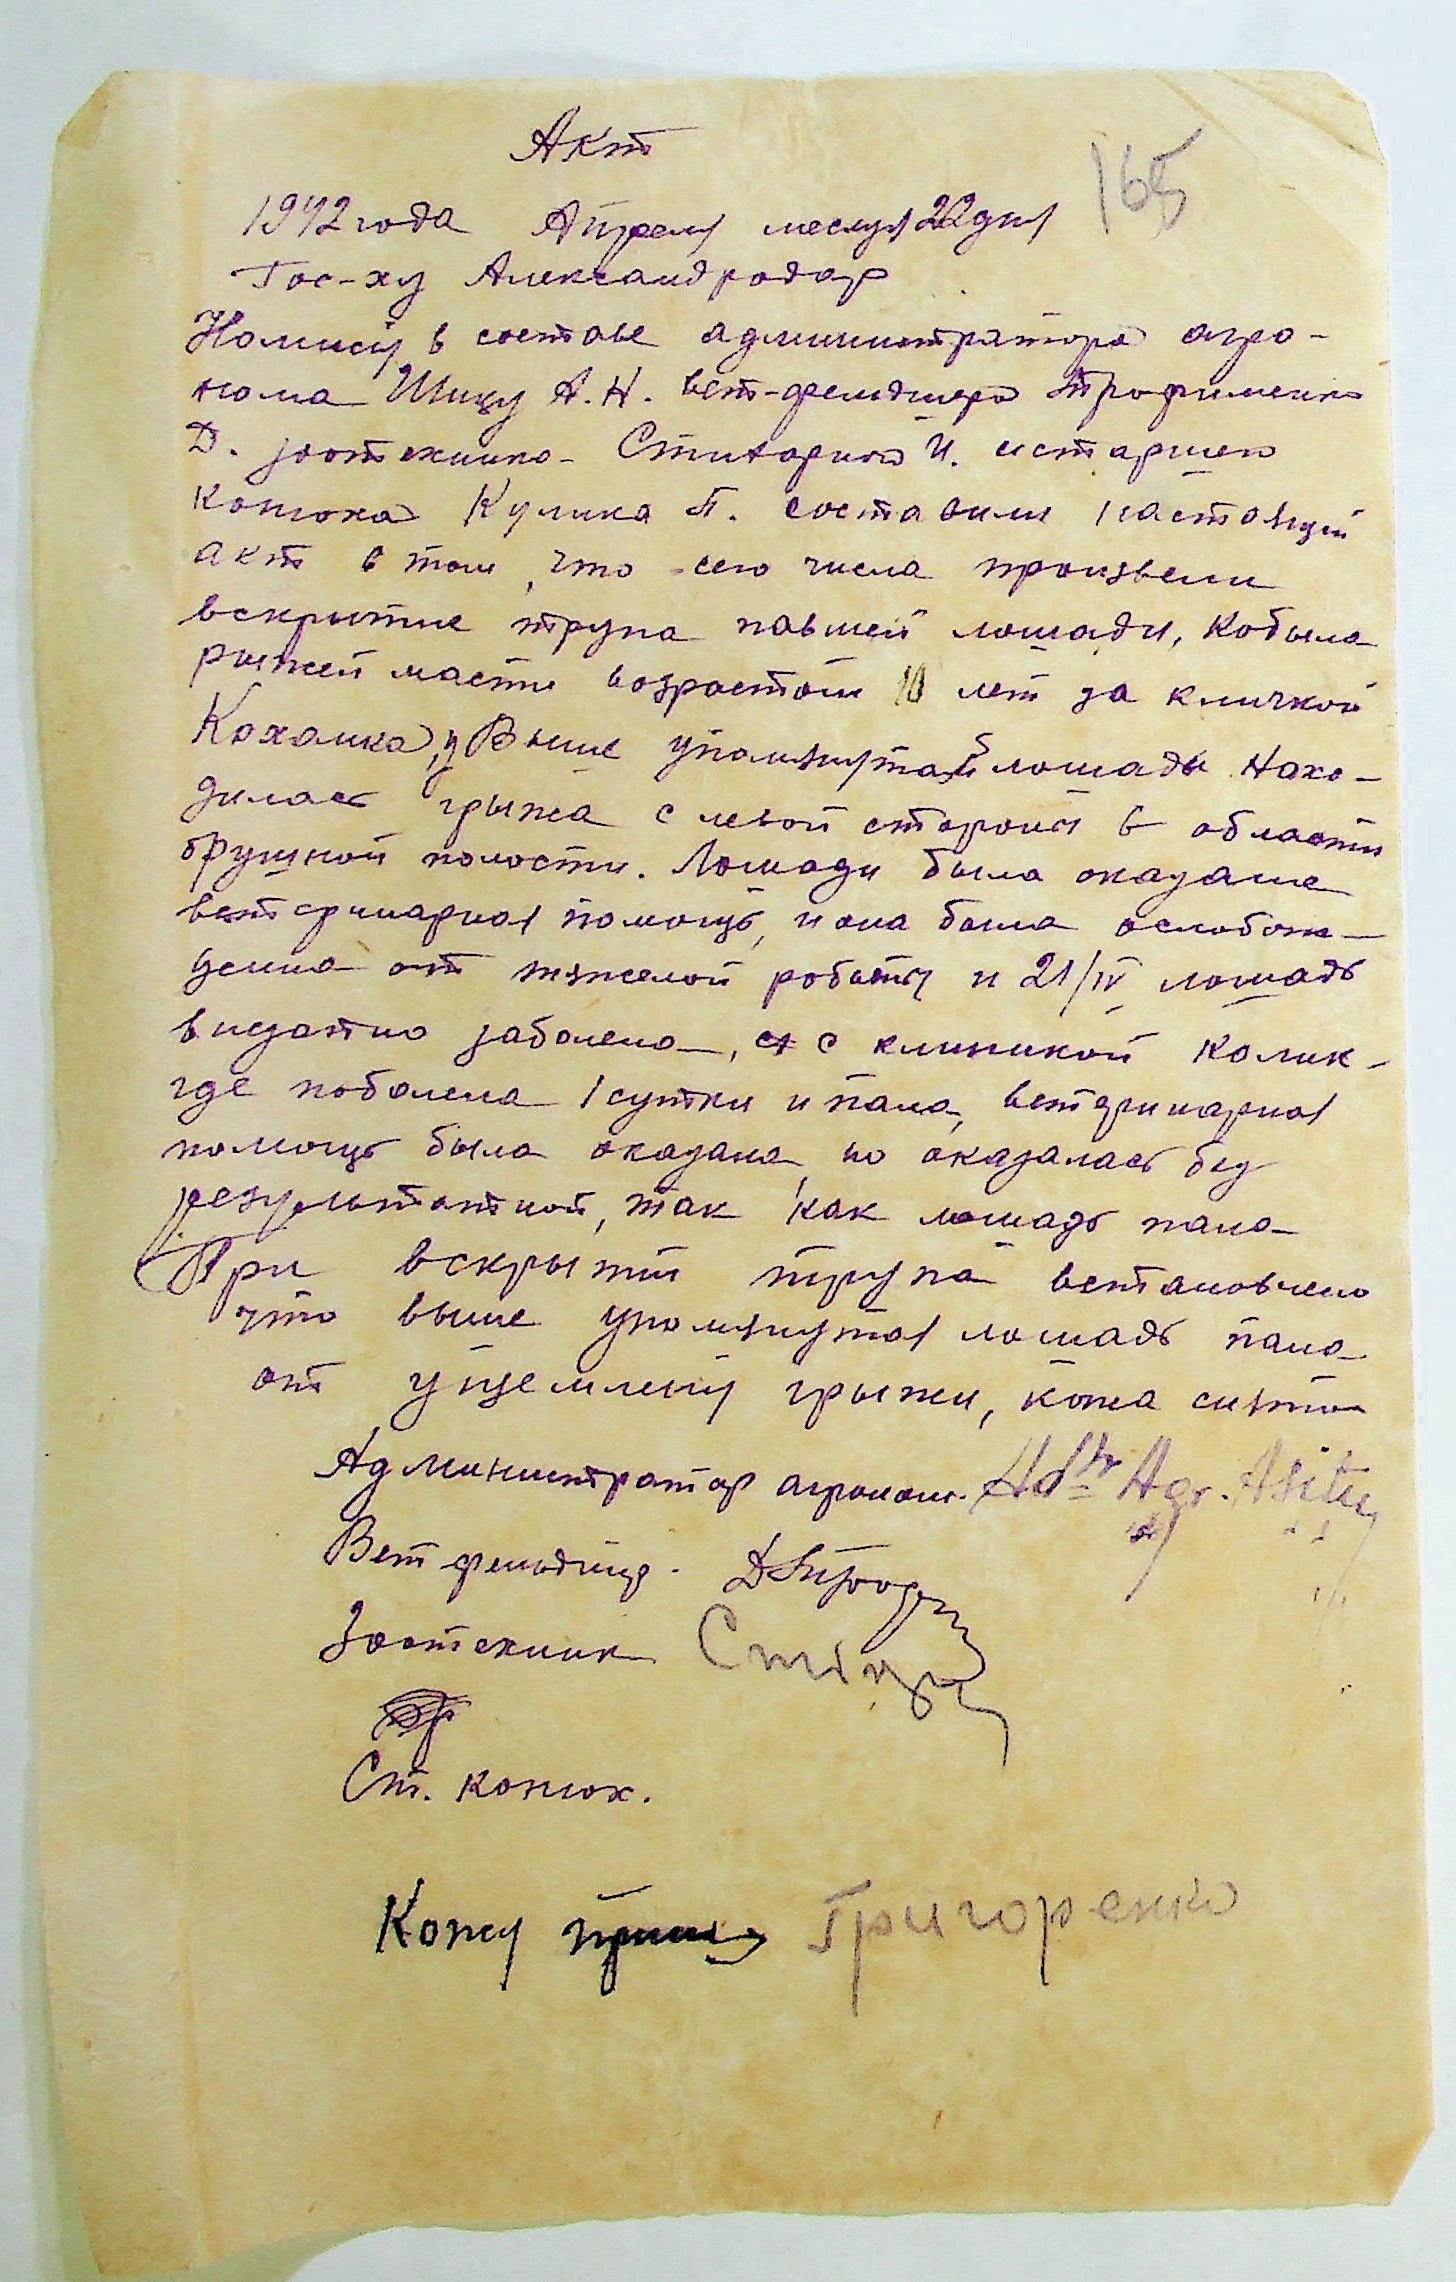 Акт
165
1942 года Апреля месяця 22 дня
Гос-ху Александродар
Комисия в составе администратора агро-
нома Шицу А.Н. вет-фельдшера Трофименко
Д. зоотехника Ститорина И. и старшего
конюха Кулика П. составили настоящий
акт в том, что сего числа произвели
вскрытие трупа павшей лошади, Кобыла
рыжей масти возрастом 10 лет за кличкой
Коханка, у Выше упомянутай лошади Нахо-
дилась грыжа с левой стороны в области
брушной полости. Лошади была оказана
ветеринарная помощь, и она была ослобож-
денна от тяжелой работы и 21/IV лошадь
внезапно заболела, с клиникой колик-
где поболела 1 сутки и пала, ветеринарная
помощь была оказана но оказалась без
результатной, так как лошадь пала
При вскрытии трупа встановлено
что выше упомянутая лошадь пала
от ущемления грыжи, кожа снята
Администратор агроном. Adtr Agr.
Вет фельдшер. Д Трофим
Зоотехник
Ст. конюх.
Кожу принял Григоренко